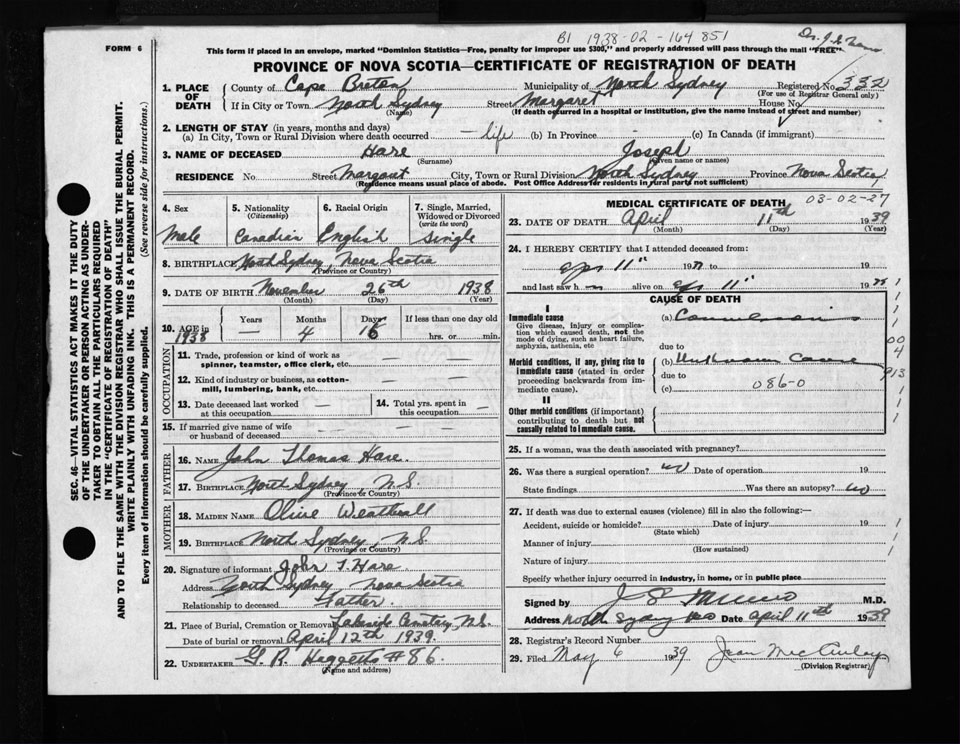 B1 1938-02-164851
Dr. J. S. Munro
FORM 6
This form if placed in an envelope, marked "Dominion Statistics—Free, penalty for improper use $300," and properly addressed will pass through the mail "FREE"
PROVINCE OF NOVA SCOTIA—CERTIFICATE OF REGISTRATION OF DEATH
1. PLACE OF DEATH
County of Cape Breton Municipality of North Sydney Registered No. 332
(For use of Registrar General only)
If in City or Town North Sydney Street Margaret House No.
(Name) (If death occurred in a hospital or institution, give the name instead of street and number)
2. LENGTH OF STAY (in years, months and days)
(a) In City, Town or Rural Division where death occurred — life (b) In Province (c) In Canada (if immigrant)
3. NAME OF DECEASED Hare Joseph
(Surname) (Given name or names)
RESIDENCE No Street Margaret City, Town or Rural Division North Sydney Province Nova Scotia
(Residence means usual place of abode. Post Office Address for residents in rural parts not sufficient)
SEC. 46—VITAL STATISTICS ACT MAKES IT THE DUTY
OF THE UNDERTAKER OR PERSON ACTING AS UNDER-
TAKER TO OBTAIN ALL THE PARTICULARS REQUIRED
IN THE "CERTIFICATE OF REGISTRATION OF DEATH"
AND TO FILE THE SAME WITH THE DIVISION REGISTRAR WHO SHALL ISSUE THE BURIAL PERMIT.
WRITE PLAINLY WITH UNFADING INK. THIS IS A PERMANENT RECORD.
Every item of information should be carefully supplied. (See reverse side for instructions.)
4. Sex
Male
5. Nationality
(Citizenship)
Canadian
6. Racial Origin
English
7. Single, Married,
Widowed or Divorced
(write the word)
Single
8. BIRTHPLACE North Sydney, Nova Scotia
(Province or Country)
9. DATE OF BIRTH November 26th 1938
(Month) (Day) (Year)
10. AGE in Years Months Days If less than one day old
1938 — 4 16 hrs. or min.
OCCUPATION
11. Trade, profession or kind of work as
spinner, teamster, office clerk, etc. —
12. Kind of industry or business, as cotton-
mill, lumbering, bank, etc. —
13. Date deceased last worked
at this occupation —
14. Total yrs. spent in
this occupation —
15. If married give name of wife
or husband of deceased —
FATHER
16. NAME John Thomas Hare
17. BIRTHPLACE North Sydney, N.S.
(Province or Country)
MOTHER
18. MAIDEN NAME Olive Weathall
19. BIRTHPLACE North Sydney, N.S.
(Province or Country)
20. Signature of informant John T. Hare
Address North Sydney Nova Scotia
Relationship to deceased Father
21. Place of Burial, Cremation or Removal Lakeside Cemetery N.S.
Date of burial or removal April 12th 1939.
22. UNDERTAKER G. R. #86.
(Name and address)
MEDICAL CERTIFICATE OF DEATH
03-02-27
23. DATE OF DEATH April 11th 1939
(Month) (Day) (Year)
24. I HEREBY CERTIFY that I attended deceased from:
11" 19 to 19
and last saw h alive on 11" 19
CAUSE OF DEATH
I
Immediate cause
Give disease, injury or complica-
tion which caused death, not the
mode of dying, such as heart failure,
asphyxia, asthenia, etc
(a) Convulsions
due to
Morbid conditions, if any, giving rise to
immediate cause (stated in order
proceeding backwards from im-
mediate cause).
(b) Unknown Cause
due to
(c) 086-0
II
Other morbid conditions (if important)
contributing to death but not
causally related to immediate cause.
00
4
913
25. If a woman, was the death associated with pregnancy?
26. Was there a surgical operation? no Date of operation 19
State findings Was there an autopsy? no
27. If death was due to external causes (violence) fill in also the following:—
Accident, suicide or homicide? Date of injury 19
(State which)
Manner of injury
(How sustained)
Nature of injury
Specify whether injury occurred in industry, in home, or in public place
Signed by J S Munro M.D.
Address North Sydney Date April 11th 1939
28. Registrar's Record Number
29. Filed May 6 1939 Jean McAulay
(Division Registrar)